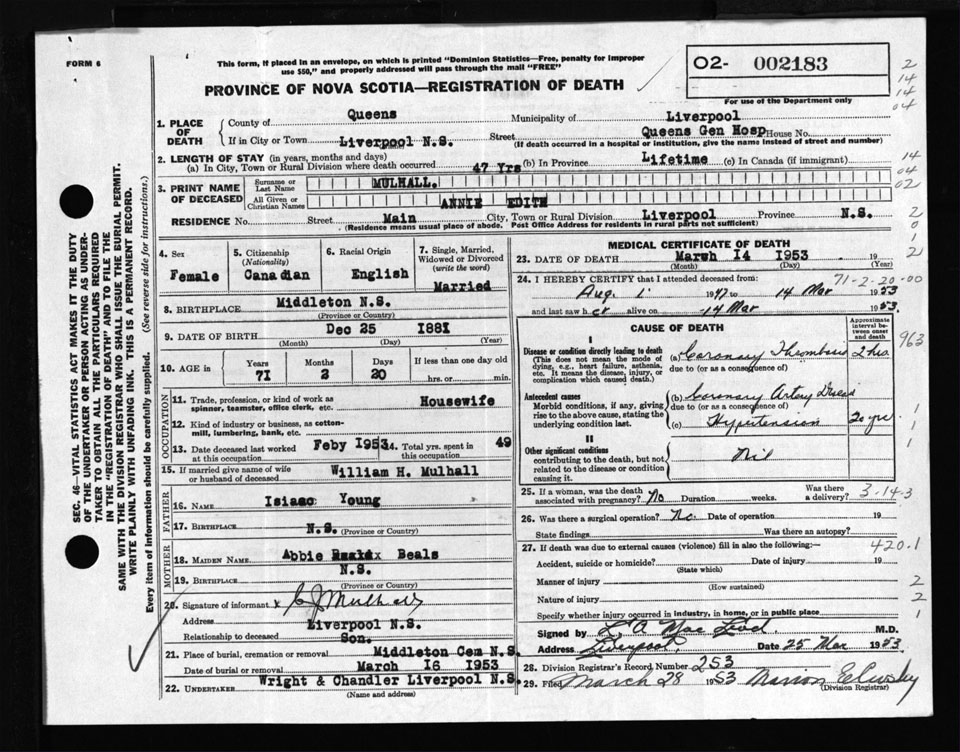 FORM 6
This form, if placed in an envelope, on which is printed "Dominion Statistics—Free, penalty for improper
use $50," and properly addressed will pass through the mail "FREE"
PROVINCE OF NOVA SCOTIA—REGISTRATION OF DEATH
O2- 002183
For use of the Department only
2
14
14
04
1. PLACE OF DEATH
County of Queens Municipality of Liverpool
If in City or Town Liverpool N.S. Street Queens Gen Hosp House No.
(If death occurred in a hospital or institution, give the name instead of street and number)
2. LENGTH OF STAY (in years, months and days)
(a) In City, Town or Rural Division where death occurred 47 Yrs (b) In Province Lifetime (c) In Canada (if immigrant)
14
04
02
3. PRINT NAME OF DECEASED
Surname or Last Name MULHALL.
All Given or Christian Names ANNIE EDITH
RESIDENCE No. Street Main City, Town or Rural Division Liverpool Province N.S.
(Residence means usual place of abode. Post Office Address for residents in rural parts not sufficient)
2
0
1
2
4. Sex
Female
5. Citizenship (Nationality)
Canadian
6. Racial Origin
English
7. Single, Married, Widowed or Divorced (write the word)
Married
8. BIRTHPLACE Middleton N.S.
(Province or Country)
9. DATE OF BIRTH Dec 25 1881
(Month) (Day) (Year)
10. AGE in
Years 71
Months 2
Days 20
If less than one day old
hrs. or min.
OCCUPATION
11. Trade, profession, or kind of work as spinner, teamster, office clerk, etc. Housewife
12. Kind of industry or business, as cotton-mill, lumbering, bank, etc.
13. Date deceased last worked at this occupation Feby 1953
14. Total yrs. spent in this occupation 49
15. If married give name of wife or husband of deceased William H. Mulhall
FATHER
16. NAME Isiaac Young
17. BIRTHPLACE N.S.
(Province or Country)
MOTHER
18. MAIDEN NAME Abbie Beals
19. BIRTHPLACE N.S.
(Province or Country)
20. Signature of informant x C J Mulhall
Address Liverpool N.S.
Relationship to deceased Son.
21. Place of burial, cremation or removal Middleton Cem N.S.
Date of burial or removal March 16 1953
22. UNDERTAKER Wright & Chandler Liverpool N.S.
(Name and address)
MEDICAL CERTIFICATE OF DEATH
23. DATE OF DEATH March 14 1953
(Month) (Day) (Year)
71-2-20-00
24. I HEREBY CERTIFY that I attended deceased from:
Aug. 1 1947 to 14 Mar 1953
and last saw her alive on 14 Mar 1953.
CAUSE OF DEATH
Approximate interval between onset and death
963
I
Disease or condition directly leading to death
(This does not mean the mode of dying, e.g., heart failure, asthenia, etc. It means the disease, injury, or complication which caused death.)
(a) Coronary Thrombosis 2 hrs
due to (or as a consequence of)
Antecedent causes
Morbid conditions, if any, giving rise to the above cause, stating the underlying condition last.
(b) Coronary Artery Disease
due to (or as a consequence of)
(c) Hypertension 20 yrs
1
1
1
II
Other significant conditions
contributing to the death, but not related to the disease or condition causing it.
Nil
25. If a woman, was the death associated with pregnancy? No Duration weeks. Was there a delivery? 3-14-3
26. Was there a surgical operation? No. Date of operation 19
State findings Was there an autopsy?
27. If death was due to external causes (violence) fill in also the following:— 420.1
Accident, suicide or homicide? Date of injury 19
(State which)
Manner of injury 2
(How sustained)
Nature of injury 2
Specify whether injury occurred in industry, in home, or in public place 1
Signed by Mac Leod. M.D.
Address Liverpool, Date 25 Mar 1953
28. Division Registrar's Record Number 253
29. Filed March 28 1953 Marion E Cursby
(Division Registrar)
SEC. 46—VITAL STATISTICS ACT MAKES IT THE DUTY
OF THE UNDERTAKER OR PERSON ACTING AS UNDER-
TAKER TO OBTAIN ALL THE PARTICULARS REQUIRED
IN THE "REGISTRATION OF DEATH" AND TO FILE THE
SAME WITH THE DIVISION REGISTRAR WHO SHALL ISSUE THE BURIAL PERMIT.
WRITE PLAINLY WITH UNFADING INK. THIS IS A PERMANENT RECORD.
Every item of information should be carefully supplied. (See reverse side for instructions.)